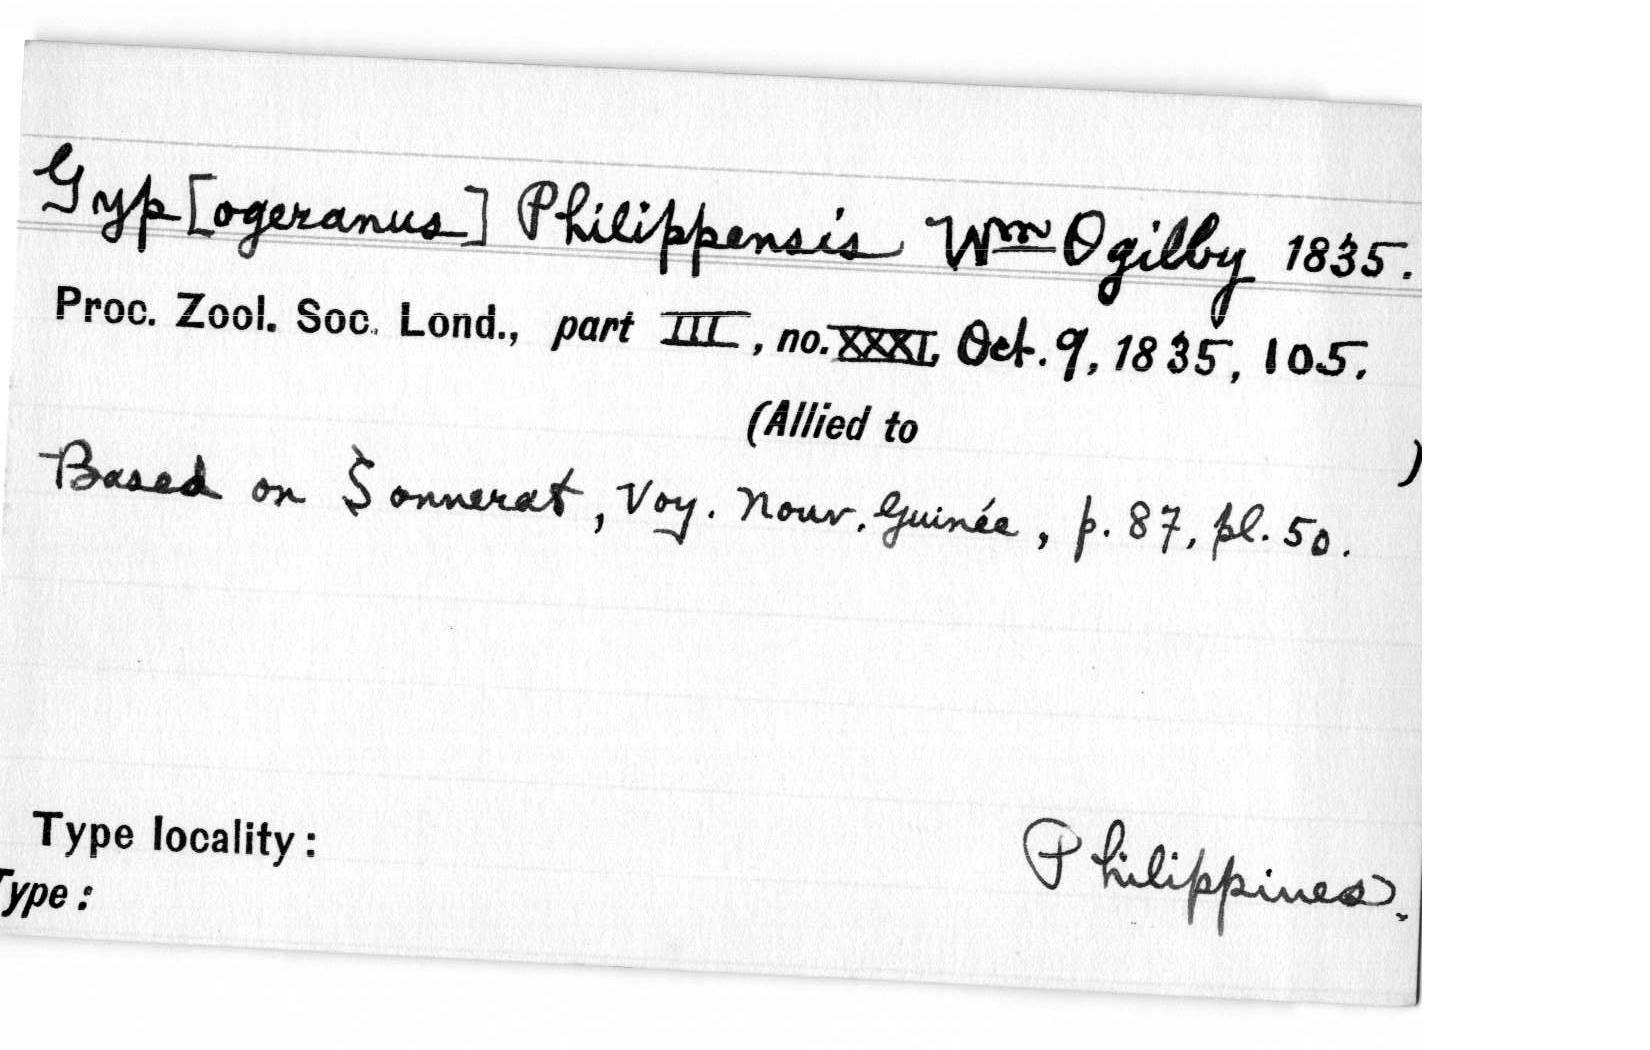 Gyp[ogeranus] Philippensis Wm Ogilby 1835.
Proc. Zool. Soc. Lond., part III, no. XXXI, Oct. 9, 1835, 105.
(Allied to )
Based on Sonnerat, Voy. Nouv. Guinée, p. 87, pl. 50.
Type locality: Philippines.
Type: